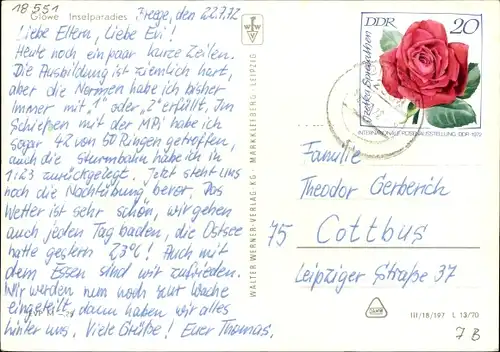 18551
Glowe Inselparadies
Breege, den 22.7.72
Liebe Eltern, Liebe Evi!
Heute noch ein paar kurze Zeilen.
Die Ausbildung ist ziemlich hart,
aber die Normen habe ich bisher
immer mit "1" oder "2" erfüllt. Im
Schießen mit der MPi habe ich
sogar 42 von 50 Ringen getroffen,
auch die Sturmbahn habe ich in
1:23 zurückgelegt. Jetzt steht uns
noch die Nachtübung bevor. Das
Wetter ist sehr schön, wir gehen
auch jeden Tag baden, die Ostsee
hatte gestern 23°C! Auch mit
dem Essen sind wir zufrieden.
Wir werden nun noch zur Wache
eingeteilt, dann haben wir alles
hinter uns. Viele Grüße! Euer Thomas.
WALTER WERNER-VERLAG KG · MARKKLEEBERG · LEIPZIG
DDR 20
INTERNATIONALE ROSENAUSSTELLUNG DDR 1972
Familie
Theodor Gerberich
75 Cottbus
Leipziger Straße 37
III/18/197 L 13/70
7 B